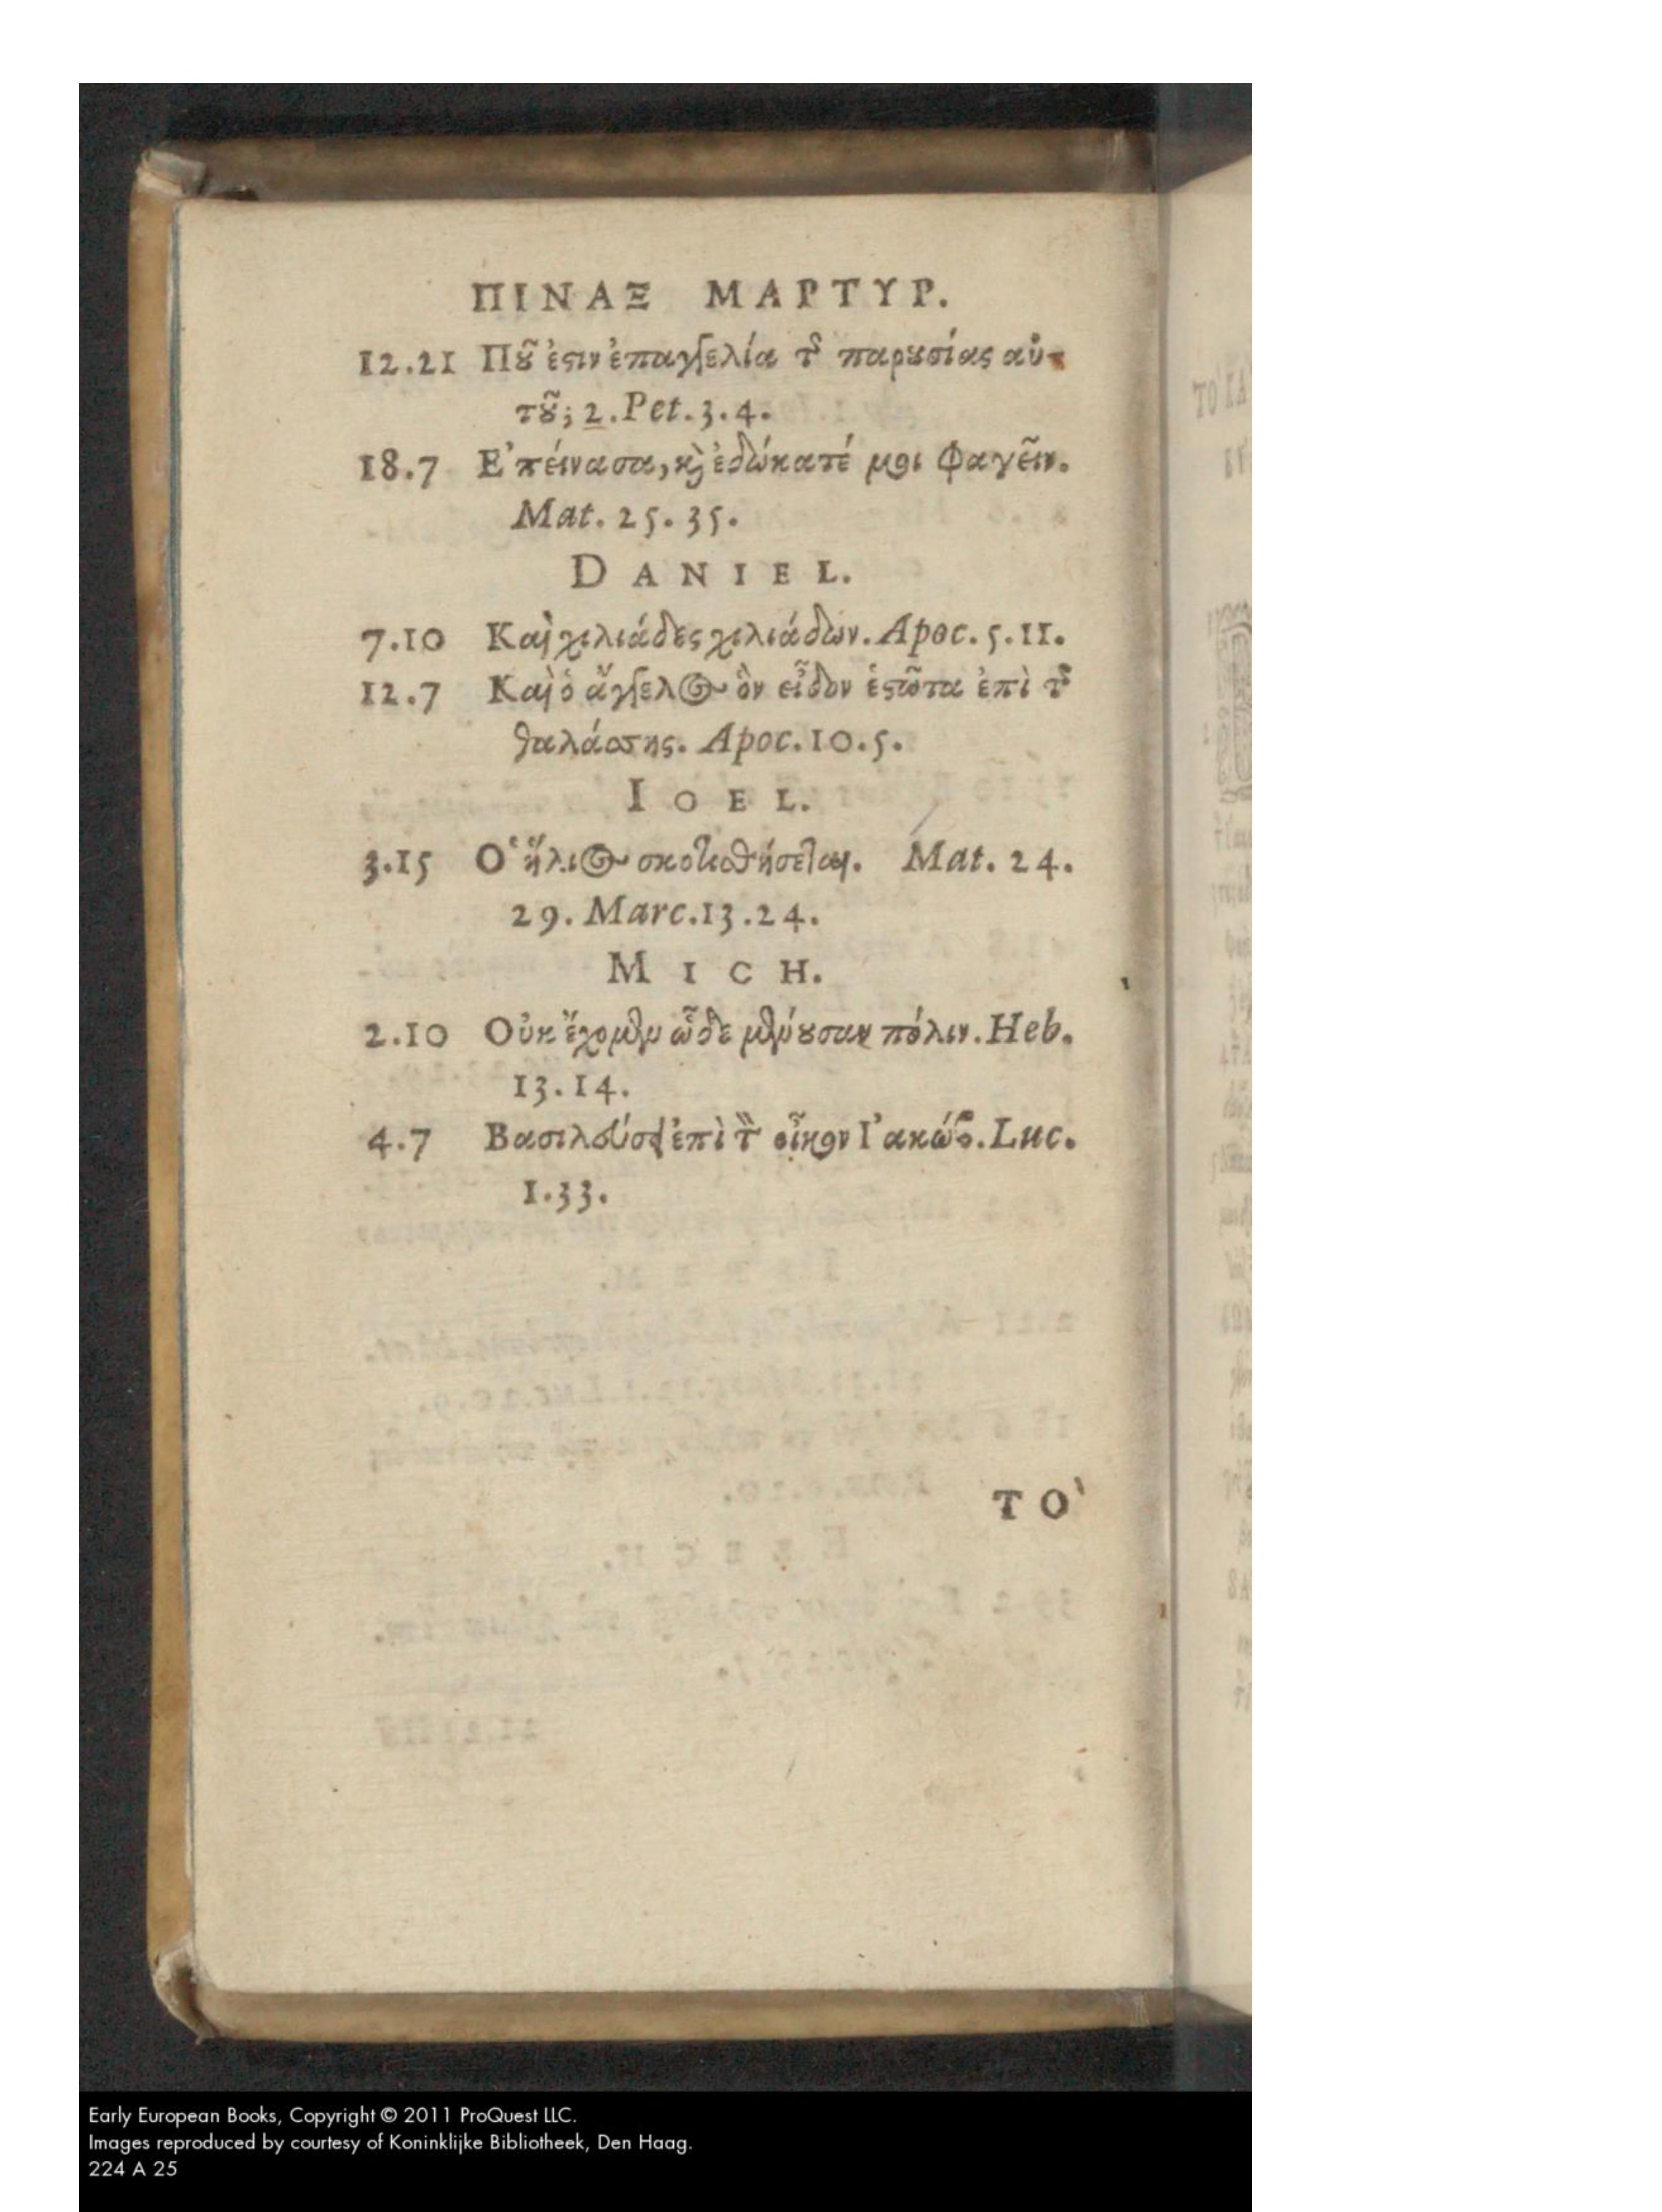 ΠΙΝΑΞ ΜΑΡΤΥΡ.
12.21 Πȣ͂ ἐϛιν ἐπαγγελία τῆς παρȣσίας αὐ-
τȣ͂; 2. Pet. 3. 4.
18.7 Ἐπείνασα, καὶ ἐδώκατέ μοι φαγεῖν.
Mat. 25. 35.
DANIEL.
7.10 Καὶ χιλιάδες χιλιάδων. Apoc. 5. 11.
12.7 Καὶ ὁ ἄγγελος ὃν εἶδον ἑϛῶτα ἐπὶ τῆς
θαλάσσης. Apoc. 10. 5.
IOEL.
3.15 Ὁ ἥλιος σκοτισθήσεται. Mat. 24.
29. Marc. 13. 24.
MICH.
2.10 Οὐκ ἔχομεν ὧδε μένȣσαν πόλιν. Heb.
13. 14.
4.7 Βασιλεύσει ἐπὶ τὸν οἶκον Ἰακώβ. Luc.
1. 33.
ΤΟ`
Early European Books, Copyright © 2011 ProQuest LLC.
Images reproduced by courtesy of Koninklijke Bibliotheek, Den Haag.
224 A 25